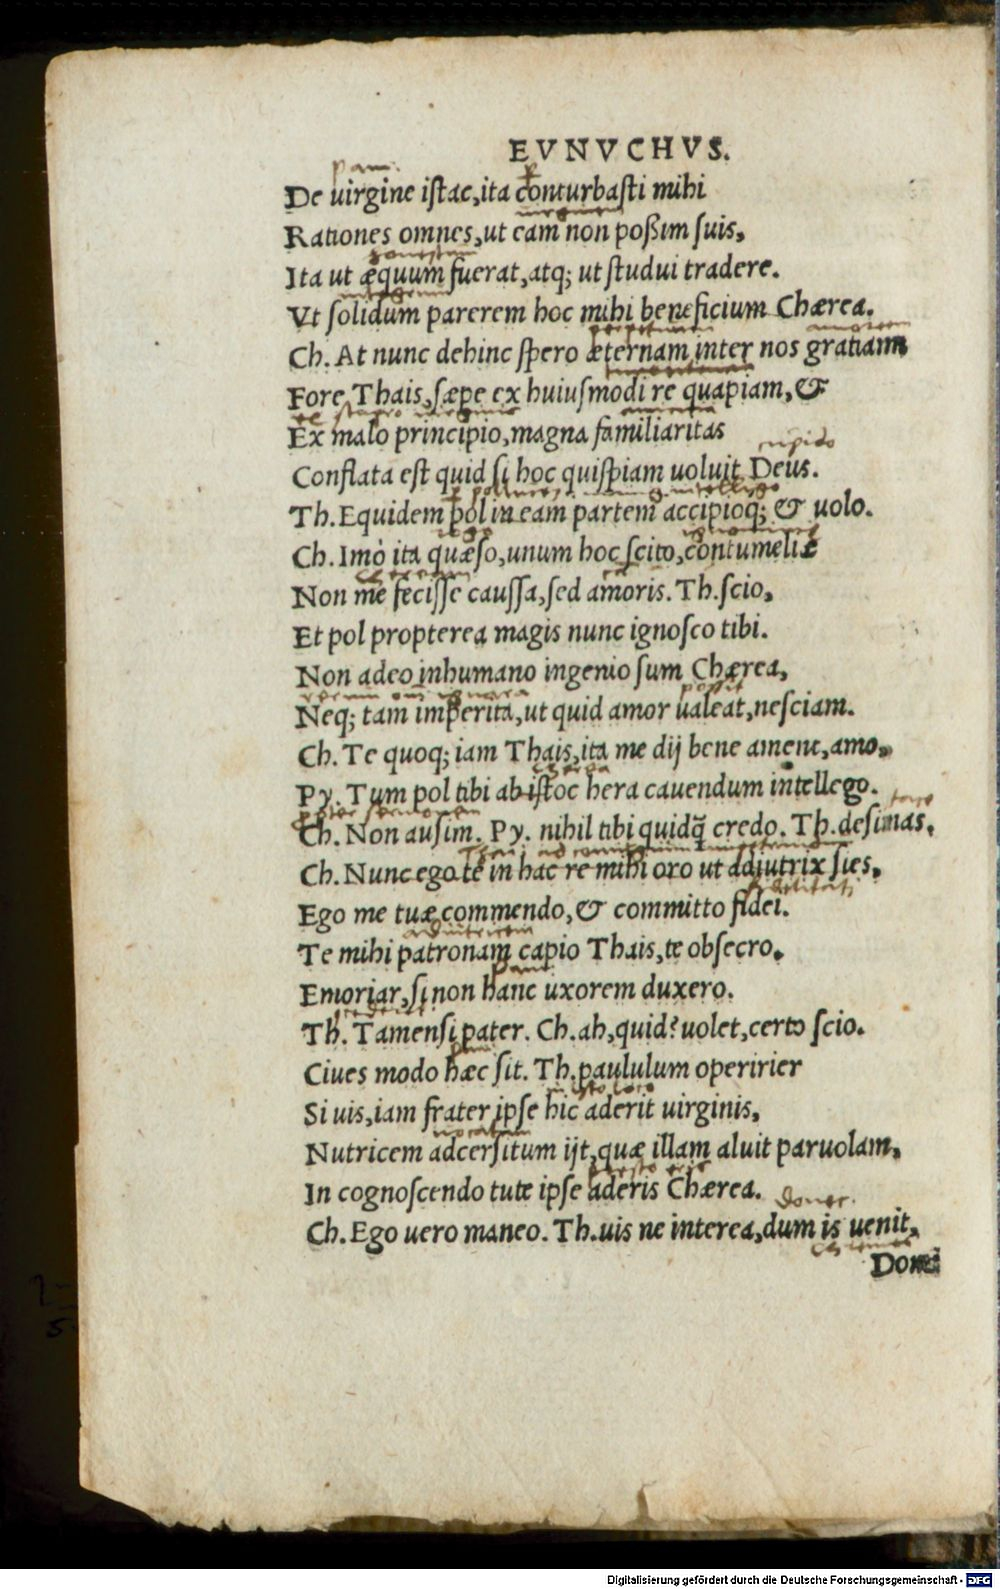 EVNVCHVS.
De uirgine istac, ita conturbasti mihi
Rationes omnes, ut eam non poßim suis,
Ita ut æquum fuerat, atq; ut studui tradere.
Vt solidum parerem hoc mihi beneficium Chærea.
Ch. At nunc dehinc spero æternam inter nos gratiam
Fore Thais, sæpe ex huiusmodi re quapiam, &
Ex malo principio, magna familiaritas
cupido
Conflata est quid si hoc quispiam uoluit Deus.
Th. Equidem pol in eam partem accipioq; & uolo.
Ch. Imò ita quæso, unum hoc scito, contumeliæ
Non me fecisse caussa, sed amoris. Th. scio,
Et pol propterea magis nunc ignosco tibi.
Non adeo inhumano ingenio sum Chærea,
possit
Neq; tam imperita, ut quid amor ualeat, nesciam.
Ch. Te quoq; iam Thais, ita me dij bene ament, amo,
Py. Tum pol tibi ab istoc hera cauendum intellego.
Ch. Non ausim. Py. nihil tibi quidq̃ credo. Th. desinas.
Ch. Nunc ego te in hac re mihi oro ut adiutrix sies,
Ego me tuæ commendo, & committo fidei.
Te mihi patronam capio Thais, te obsecro.
Emoriar, si non hanc uxorem duxero.
Th. Tamensi pater. Ch. ah, quid? uolet, certo scio.
Ciues modo hæc sit. Th. paululum operirier
Si uis, iam frater ipse hic aderit uirginis,
Nutricem adcersitum ijt, quæ illam aluit paruolam,
In cognoscendo tute ipse aderis Chærea.
donec
Ch. Ego uero maneo. Th. uis ne interea, dum is uenit,
Domi
Digitalisierung gefördert durch die Deutsche Forschungsgemeinschaft - DFG